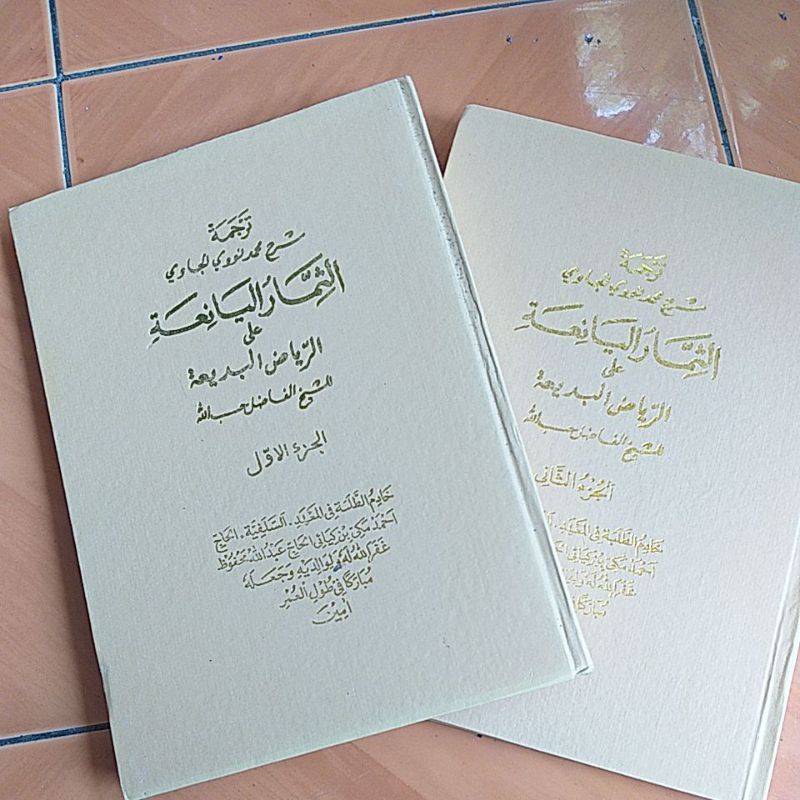 تَرْجَمَة
شرح محمد نووي الجاوي
الثِّمَارُ اليَانِعَة
على
الرّياض البديعة
للشيخ الفاضل حسب الله
الجزء الاوّل
خَادِمُ الطَّلَبَةِ فِى المَعْهَدِ . السَّلَفِيَّة . الحاج
اَحْمَدْ مَكِى بِنْ كِيَاهِى الحَاجّ عَبْدُاللّٰه مَحْفُوظْ
غَفَرَ اللّٰهُ لَهُ وَلِوَالِدَيْهِ وَجَعَلَهُ
مُبَارَكًا فِى طُوْلِ الْعُمُرِ
اٰمِيْن
تَرْجَمَة
شرح محمد نووي الجاوي
الثِّمَارُ اليَانِعَة
على
الرّياض البديعة
للشيخ الفاضل حسب الله
الجُزْءُ الثَّانِى
خَادِمُ الطَّلَبَةِ فِى المَعْهَدِ .
اَحْمَدْ مَكِى بِنْ كِيَاهِى
غَفَرَ اللّٰهُ لَهُ